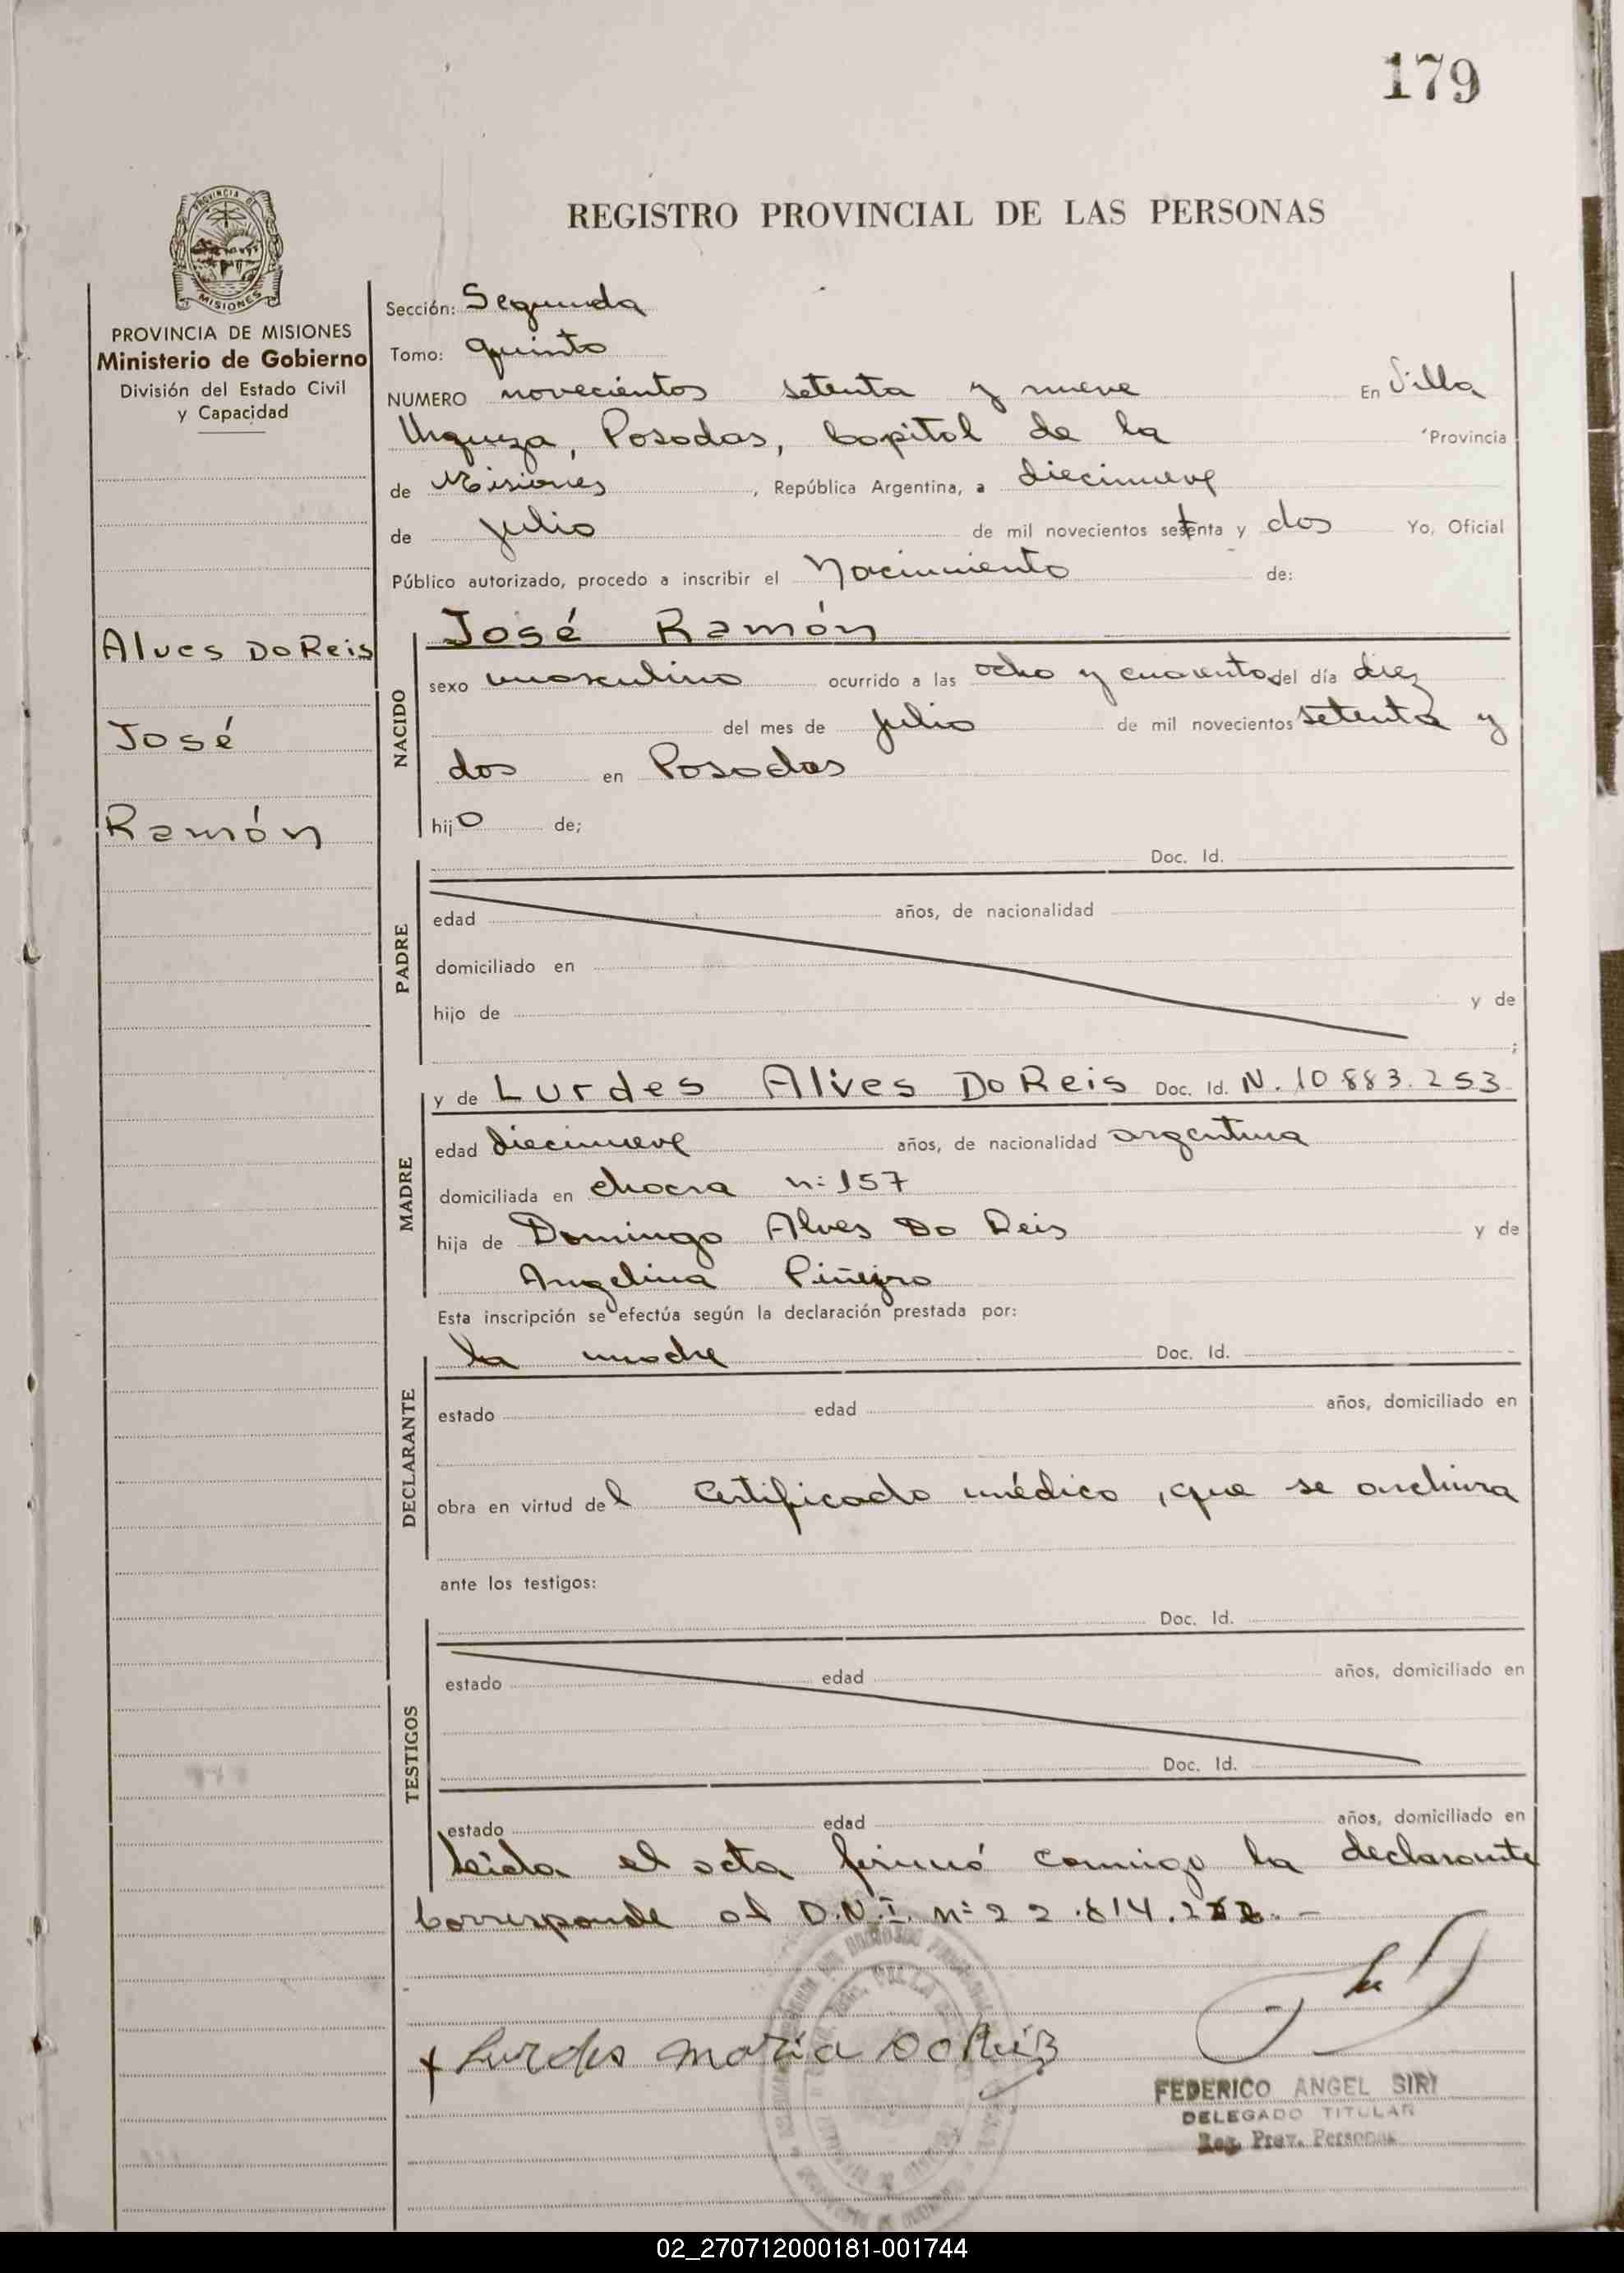 179
REGISTRO PROVINCIAL DE LAS PERSONAS
PROVINCIA DE
MISIONES
PROVINCIA DE MISIONES
Ministerio de Gobierno
División del Estado Civil
y Capacidad
Alves DoReis
José
Ramón
Sección: Segunda
Tomo: quinto
NUMERO novecientos setenta y nueve En Villa
Urquiza, Posadas, Capital de la Provincia
de Misiones, República Argentina, a diecinueve
de julio de mil novecientos setenta y dos Yo, Oficial
Público autorizado, procedo a inscribir el Nacimiento de:
NACIDO
José Ramón
sexo masculino ocurrido a las ocho y cuarenta del día diez
del mes de julio de mil novecientos setenta y
dos en Posadas
hijo de;
PADRE
Doc. Id.
edad años, de nacionalidad
domiciliado en
hijo de y de
;
MADRE
y de Lurdes Alves DoReis Doc. Id. N. 10.883.253
edad diecinueve años, de nacionalidad argentina
domiciliada en chacra n: 157
hija de Domingo Alves Do Reis y de
Angelina Piñeyro
Esta inscripción se efectúa según la declaración prestada por:
DECLARANTE
la madre Doc. Id.
estado edad años, domiciliado en
obra en virtud del certificado médico, que se archiva
ante los testigos:
TESTIGOS
Doc. Id.
estado edad años, domiciliado en
Doc. Id.
estado edad años, domiciliado en
Leída el acta firmó conmigo la declarante
Corresponde al D.N.I. n: 22.814.
x Lurdes Maria Do Reis
FEDERICO ANGEL SIRI
DELEGADO TITULAR
Reg. Prov. Personas
02_270712000181-001744